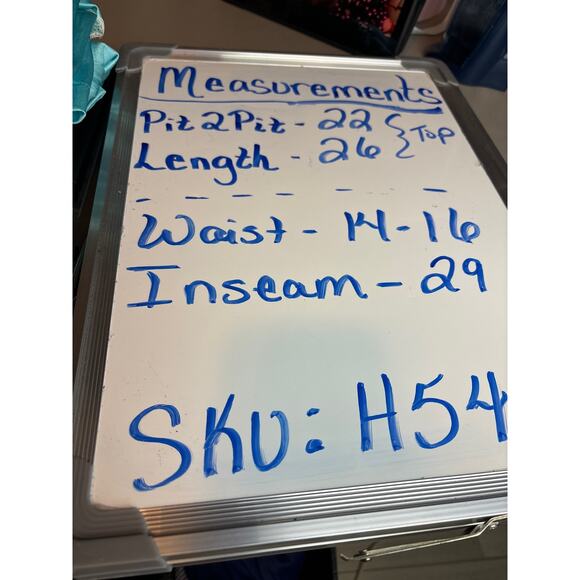 Measurements
Pit2Pit - 22 } Top
Length - 26
- - - - - -
Waist - 14-16
Inseam - 29
SKU: H54